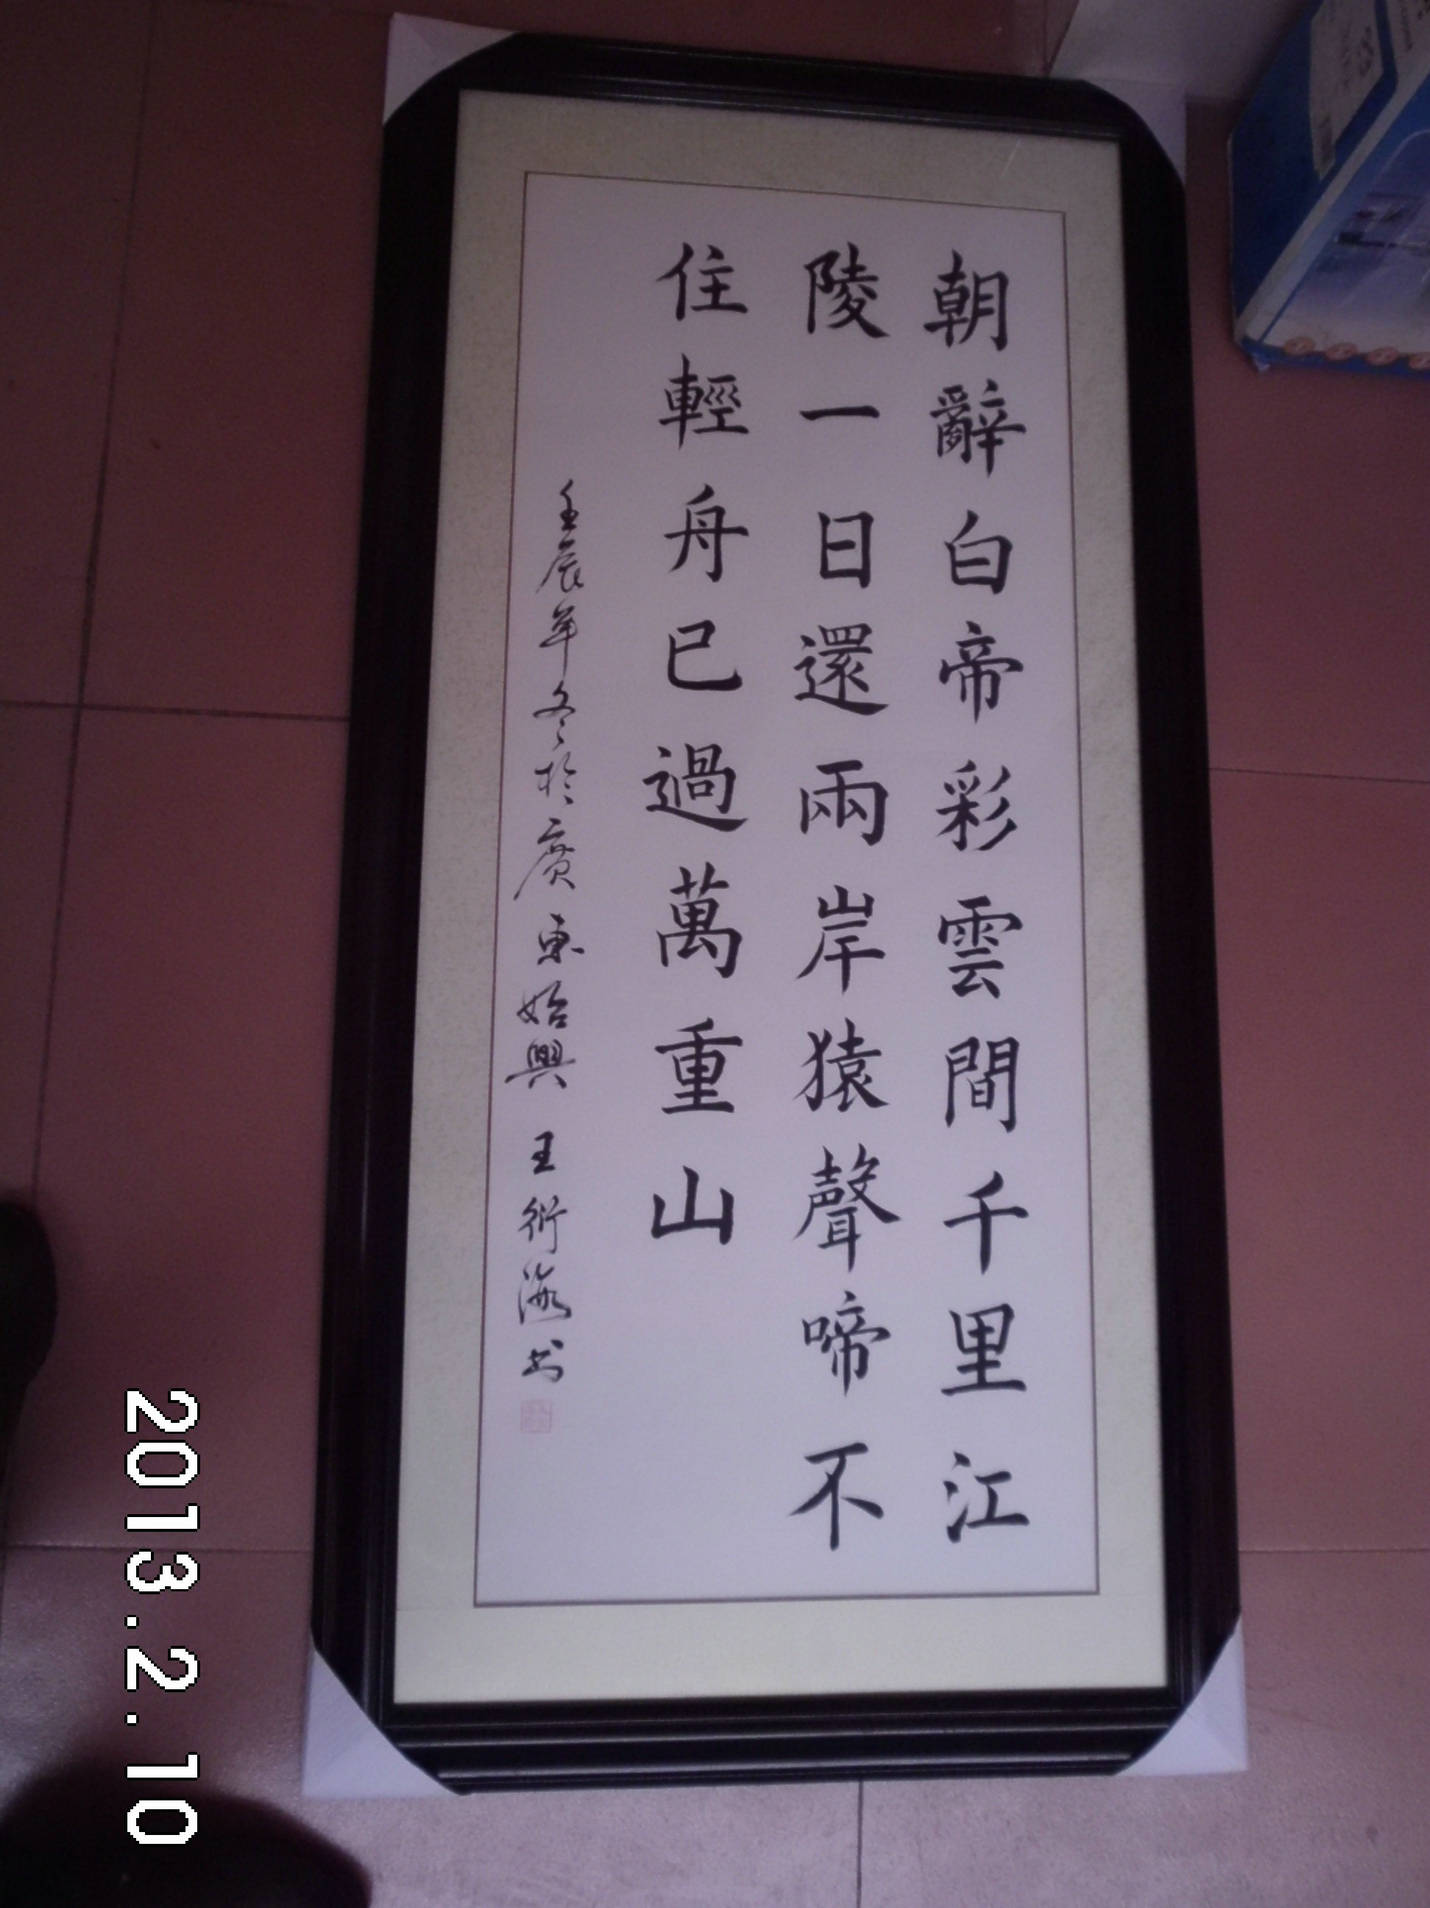 朝辭白帝彩雲間千里江
陵一日還兩岸猿聲啼不
住輕舟已過萬重山
壬辰年冬於廣東始興 王衍海书
2013.2.10